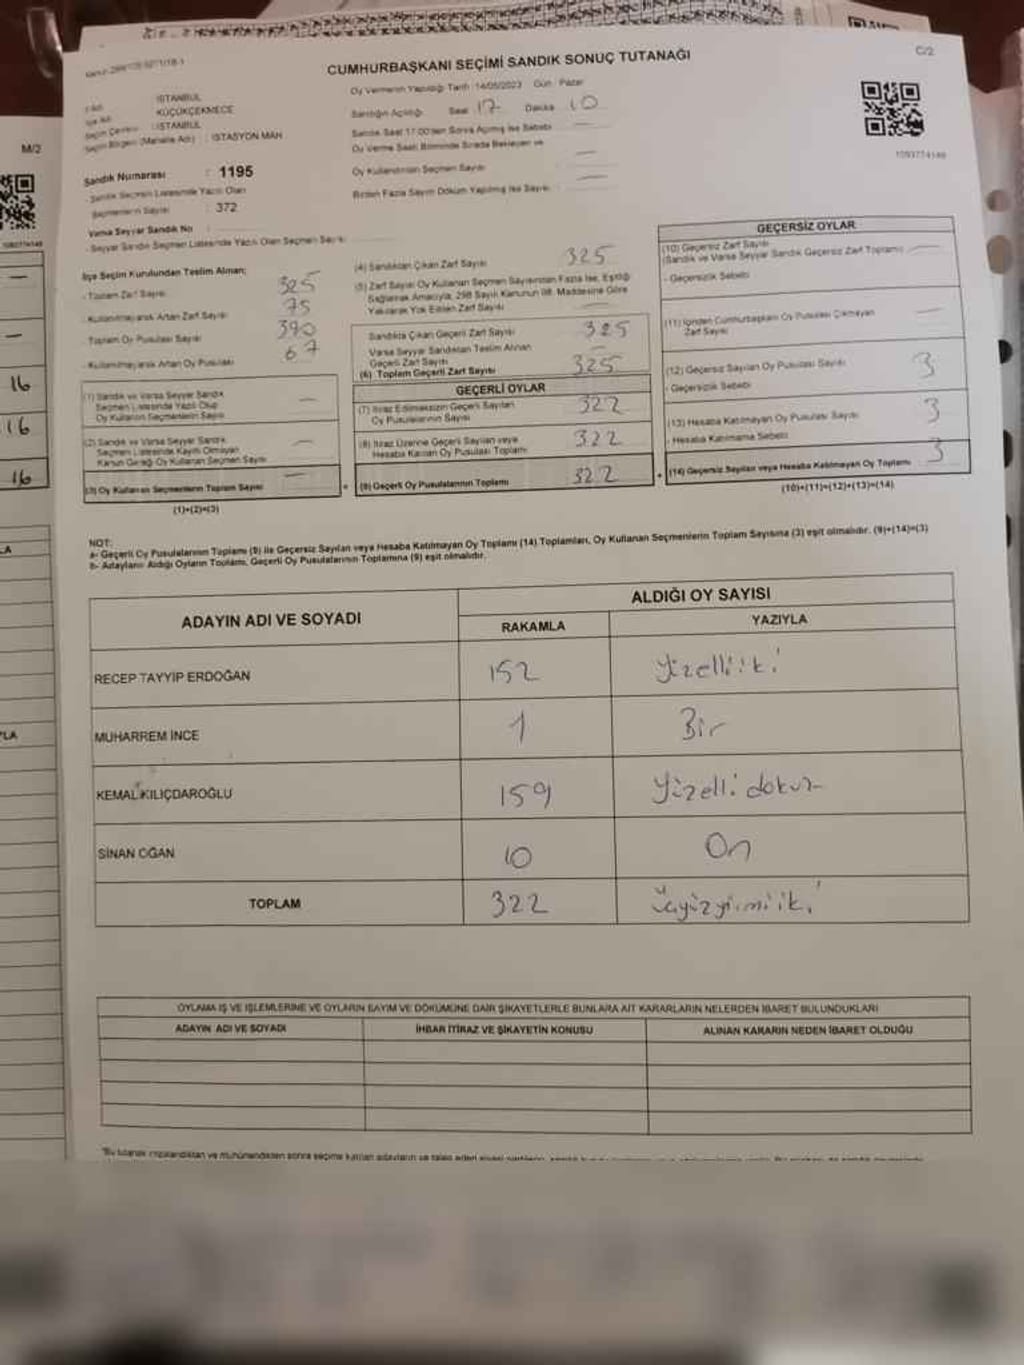 C/2
CUMHURBAŞKANI SEÇİMİ SANDIK SONUÇ TUTANAĞI
Oy Vermenin Yapıldığı Tarih : 14/05/2023 Gün : Pazar
İSTANBUL
KÜÇÜKÇEKMECE
Seçim Çevresi : İSTANBUL
Seçim Bölgesi (Mahalle Adı) : İSTASYON MAH.
Sandığın Açıldığı Saat 17 Dakika 10
Sandık Saat 17:00'den Sonra Açılmış İse Sebebi
Oy Verme Saati Bitiminde Sırada Bekleyen ve
Oy Kullandırılan Seçmen Sayısı
Birden Fazla Sayım Döküm Yapılmış İse Sayısı
1093774149
M/2
Sandık Numarası : 1195
Sandık Seçmen Listesinde Yazılı Olan
Seçmenlerin Sayısı : 372
Varsa Seyyar Sandık No
- Seyyar Sandık Seçmen Listesinde Yazılı Olan Seçmen Sayısı
İlçe Seçim Kurulundan Teslim Alınan;
- Toplam Zarf Sayısı 325
- Kullanılmayarak Artan Zarf Sayısı 75
Toplam Oy Pusulası Sayısı 390
- Kullanılmayarak Artan Oy Pusulası 67
(1) Sandık ve Varsa Seyyar Sandık
Seçmen Listesinde Yazılı Olup
Oy Kullanan Seçmenlerin Sayısı —
(2) Sandık ve Varsa Seyyar Sandık
Seçmen Listesinde Kayıtlı Olmayan
Kanun Gereği Oy Kullanan Seçmen Sayısı —
(3) Oy Kullanan Seçmenlerin Toplam Sayısı —
(1)+(2)=(3)
(4) Sandıktan Çıkan Zarf Sayısı 325
(5) Zarf Sayısı Oy Kullanan Seçmen Sayısından Fazla İse, Eşitliği
Sağlamak Amacıyla, 298 Sayılı Kanunun 98. Maddesine Göre
Yakılarak Yok Edilen Zarf Sayısı —
Sandıkta Çıkan Geçerli Zarf Sayısı 325
Varsa Seyyar Sandıktan Teslim Alınan
Geçerli Zarf Sayısı —
(6) Toplam Geçerli Zarf Sayısı 325
GEÇERLİ OYLAR
(7) İtiraz Edilmeksizin Geçerli Sayılan
Oy Pusulalarının Sayısı 322
(8) İtiraz Üzerine Geçerli Sayılan veya
Hesaba Katılan Oy Pusulası Toplamı 322
(9) Geçerli Oy Pusulalarının Toplamı 322
GEÇERSİZ OYLAR
(10) Geçersiz Zarf Sayısı
(Sandık ve Varsa Seyyar Sandık Geçersiz Zarf Toplamı) —
- Geçersizlik Sebebi
(11) İçinden Cumhurbaşkanı Oy Pusulası Çıkmayan
Zarf Sayısı —
(12) Geçersiz Sayılan Oy Pusulası Sayısı 3
- Geçersizlik Sebebi
(13) Hesaba Katılmayan Oy Pusulası Sayısı 3
- Hesaba Katılmama Sebebi
(14) Geçersiz Sayılan veya Hesaba Katılmayan Oy Toplamı 3
(10)+(11)+(12)+(13)=(14)
16
16
16
NOT:
a- Geçerli Oy Pusulalarının Toplamı (9) ile Geçersiz Sayılan veya Hesaba Katılmayan Oy Toplamı (14) Toplamları, Oy Kullanan Seçmenlerin Toplam Sayısına (3) eşit olmalıdır. (9)+(14)=(3)
b- Adayların Aldığı Oyların Toplamı, Geçerli Oy Pusulalarının Toplamına (9) eşit olmalıdır.
ADAYIN ADI VE SOYADI ALDIĞI OY SAYISI
RAKAMLA YAZIYLA
RECEP TAYYİP ERDOĞAN 152 Yüzelliiki
MUHARREM İNCE 1 Bir
KEMAL KILIÇDAROĞLU 159 Yüzelli dokuz
SİNAN OĞAN 10 On
TOPLAM 322 Üçyüzyirmiiki
OYLAMA İŞ VE İŞLEMLERİNE VE OYLARIN SAYIM VE DÖKÜMÜNE DAİR ŞİKAYETLERLE BUNLARA AİT KARARLARIN NELERDEN İBARET BULUNDUKLARI
ADAYIN ADI VE SOYADI İHBAR İTİRAZ VE ŞİKAYETİN KONUSU ALINAN KARARIN NEDEN İBARET OLDUĞU